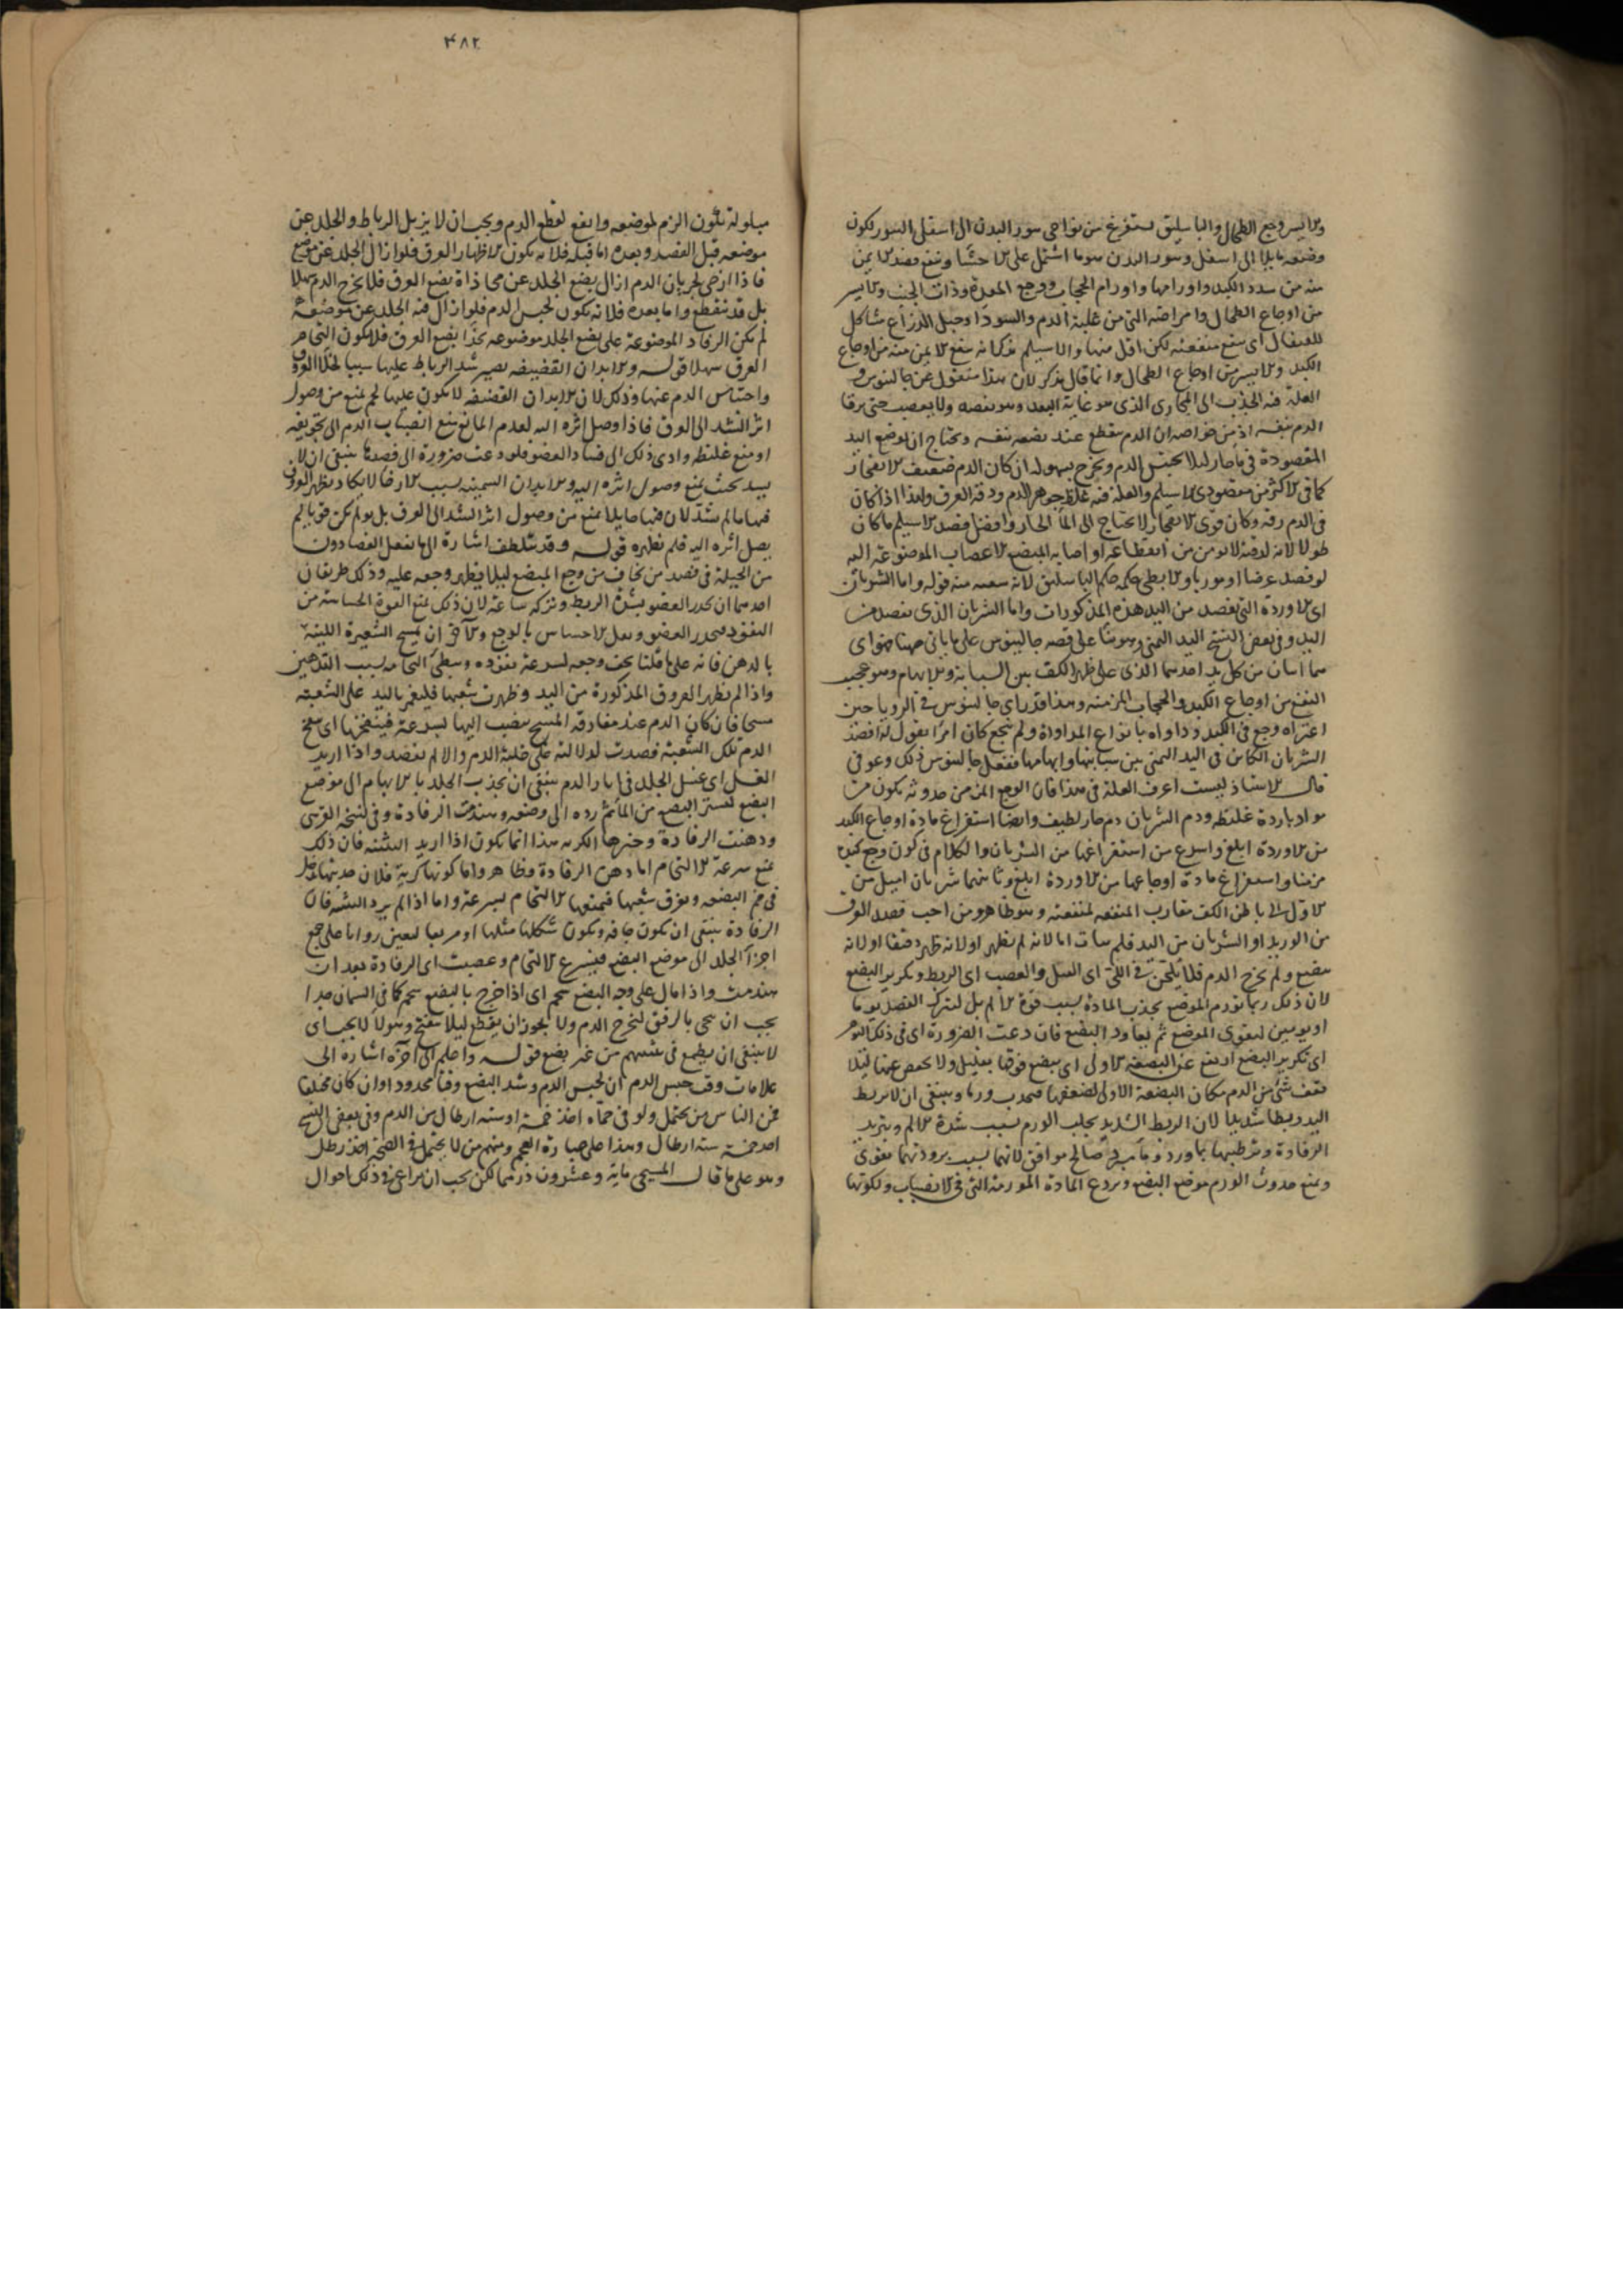 والايسر وجع الطحال والباسليق يستفرغ من نواحى سور البدن الى اسفل السور لكون
وضعه مايلا الى اسفل وسور البدن هو ما اشتمل على الاحشا وينفع فصد الايمن
منه من سدد الكبد واورامها واورام الحجاب ووجع المعدة وذات الجنب والايسر
من اوجاع الطحال وامراضه التى من غلبة الدم والسودا وحبل الذراع مشاكل
للقيفال اى ينفع منفعته لكن اقل منها والاسيلم يذكر انه ينفع الايمن منه من اوجاع
الكبد والايسر من اوجاع الطحال وانما قال يذكر لان هذا منقول عن جالينوس و
العلة فيه الجذب الى المجارى الذى هو غاية البعد وهو يفصد ولا يعصب حتى يرقا
الدم بنفسه اذ من خواصه ان الدم ينقطع عند بضعه بنفسه ويحتاج ان يوضع اليد
المفصودة فى ما حار ليلا يحتبس الدم ويخرج بسهولة ان كان الدم ضعيف الانفجار
كما فى الاكثر من مفصودى الاسيلم والعلة فيه غلظ جوهر الدم ودقة العرق ولهذا اذا كان
فى الدم رقة وكان قوى الانفجار لا يحتاج الى الما الحار وافضل فصد الاسيلم ما كان
طولا لانه لدقته لا يومن من انقطاعه او اصابه المبضع الاعصاب الموضوعة اليه
لو فصد عرضا او موربا والابطى حكمه حكم الباسليق لانه شعبه منه قوله واما الشريان
اى الاوردة التى تفصد من اليد هذه المذكورات واما الشريان الذى يفصد من
اليد وفى بعض النسخ اليد اليمنى وهو بنا على قصه جالينوس على ما ياتى ههنا فهو اى
هما اثنان من كل يد احدهما الذى على ظهر الكف بين السبابة والابهام وهو عجيب
النفع من اوجاع الكبد والحجاب المزمنة وهذا قد راى جالينوس فى الرويا حين
اعتراه وجع فى الكبد وداواه بانواع المداواة ولم ينجع كان امرا يقول له افصد
الشريان الكاين فى اليد اليمنى بين سبابتها وابهامها ففعل جالينوس ذلك وعوفى
قال الاستاذ لست اعرف العلة فى هذا فان الوجع المزمن حدوثه يكون من
مواد باردة غليظه ودم الشريان دم حار لطيف وايضا استفراغ مادة اوجاع الكبد
من الاوردة ابلغ واسرع من استفراغها من الشريان والكلام فى كون وجع الحجاب
مزمنا واستفراغ مادة اوجاعها من الاوردة ابلغ وثانيهما شريان اميل من
الاول الى باطن الكف مقارب المنفعه لمنفعته وهو ظاهر ومن احب فصد العرق
من الوريد او الشريان من اليد فلم يتات اما لانه لم يظهر او لانه ظهر دقيقا او لانه
بضع ولم يخرج الدم فلا يلحن فى الكى اى الشد والعصب اى الربط وتكرير البضع
لان ذلك ربما تورم الموضع بجذب المادة بسبب قوة الالم بل ليترك الفصد يوما
او يومين ليقوى الموضع ثم يعاود البضع فان دعت الضرورة اى فى ذلك اليوم
اى تكرير البضع ارتفع عن البضعه الاولى اى يبضع فوقها بقليل ولا يخفض عنها ليلا
يقف شى من الدم مكان البضعة الاولى لضعفها فيحدث ورما وينبغى ان لا يربط
اليد ربطا شديدا لان الربط الشديد يجلب الورم بسبب شدة الالم وتبريد
الرفادة وترطيبها بماورد وما مبرد صالح موافق لانهما بسبب برودتهما يقوى
ويمنع حدوث الورم موضع البضع ويردع المادة المورمه التى فى الانصباب ولكونها
۴۸۲
مبلولة تكون الزم لموضعه وانفع لقطع الدم ويجب ان لا يزيل الرباط والجلد عن
موضعه قبل الفصد وبعده اما قبله فلانه يكون لاظهار العرق فلو ازال الجلد عن موضع
فاذا ارخى لجريان الدم ازال بضع الجلد عن محاذاة بضع العرق فلا يخرج الدم سهلا
بل قد ينقطع واما بعده فلانه يكون لحبس الدم فلو ازال فيه الجلد عن موضعه
لم يكن الرفاد الموضوعة على بضع الجلد موضوعه بحذا بضع العرق فلا يكون التحام
العرق سهلا قوله والابدان القضيفه يصير شد الرباط عليها سببا لخلا العروق
واحتباس الدم عنها وذلك لان الابدان القضيفه لا يكون عليها لحم يمنع من وصول
اثر الشد الى العرق فاذا وصل اثره اليه لعدم المانع منع انصباب الدم الى تجويفه
او منع غلظه وادى ذلك الى فساد العضو فلو دعت ضرورة الى فصدها ينبغى ان لا
يشد بحيث يمنع وصول اثره اليه والابدان السمينه بسبب الارخا لا يكاد يظهر العرق
فيها ما لم يشد لان فيها حايلا يمنع من وصول اثر الشد الى العرق بل لو لم يكن قويا لم
يصل اثره اليه فلم يظهره قوله وقد يتلطف اشارة الى ما يفعل الفصادون
من الحيلة فى فصد من يخاف من وجع المبضع ليلا يظهر وجعه عليه وذلك طريقان
احدهما ان يخدر العضو بشدة الربط وتركه ساعة لان ذلك يمنع القوة الحساسة من
النفوذ فيخدر العضو ويقل الاحساس بالوجع والآخر ان يمسح الشعيرة اللينة
بالدهن فانه على ما قلنا يخف وجعه لسرعة نفوذه ويبطى التحامه بسبب التدهين
واذا لم يظهر العروق المذكورة من اليد وظهرت شعبها فليغمز باليد على الشعبة
مسحا فان كان الدم عند مفارقة المسح ينصب اليها بسرعة فينفخها اى ينفخ
الدم تلك الشعبة فصدت لدلالته على غلبة الدم والا لم يفصد واذا اريد
الغسل اى غسل الجلد فى اثر الدم ينبغى ان يجذب الجلد بالابهام الى موضع
البضع ليستر البضع من الما ثم رده الى وضعه وهندمت الرفادة وفى نسخه القرشى
ودهنت الرفادة وخيرها الكرية هذا انما يكون اذا اريد التثنيه فان ذلك
يمنع سرعة الالتحام اما دهن الرفادة فظاهر واما كونها كرية فلان حدبتها تدخل
فى فم البضعه وتفرق شفتيها فيمنعها الالتحام بسرعة واما اذا لم يرد التثنيه فان
الرفادة ينبغى ان تكون جافه ويكون شكلها مثلثا او مربعا ليعين زواياها على جمع
اجزا الجلد الى موضع البضع فيسرع الالتحام وعصبت اى الرفادة بعد ان
هندمت واذا مال على وجه البضع شحم اى اذا خرج بالبضع شحم كما فى السمان جدا
يجب ان ينحى بالرفق ليخرج الدم ولا يجوز ان يقطع ليلا ينفتح وهولا لا يجب اى
لا ينبغى ان يطمع فى تثنيتهم من غير بضع قوله واعلم الى آخره اشارة الى
علامات وقت حبس الدم ان لحبس الدم وشد البضع وقتا محدودا وان كان مختلفا
فمن الناس من يحتمل ولو فى حماه اخذ خمسة او ستة ارطال من الدم وفى بعض النسخ
احد خمسة ستة ارطال وهذا على عبارة العجم ومنهم من لا يحتمل فى الصحة اخذ رطل
وهو على ما قال المسيحى ماية وعشرون درهما لكن يجب ان يراعى فى ذلك احوال